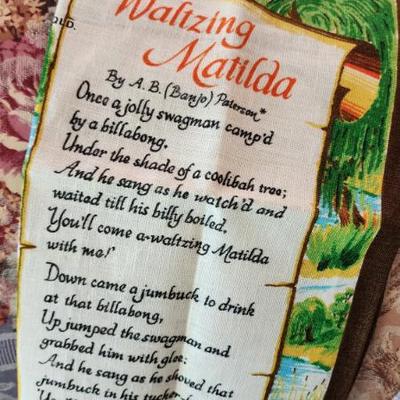 OLD.
Waltzing
Matilda
By A. B. (Banjo) Paterson*
Once a jolly swagman camp'd
by a billabong,
Under the shade of a coolibah tree;
And he sang as he watch'd and
waited till his billy boiled,
You'll come a-waltzing Matilda
with me!'
Down came a jumbuck to drink
at that billabong,
Up jumped the swagman and
grabbed him with glee;
And he sang as he shoved that
jumbuck in his tucker